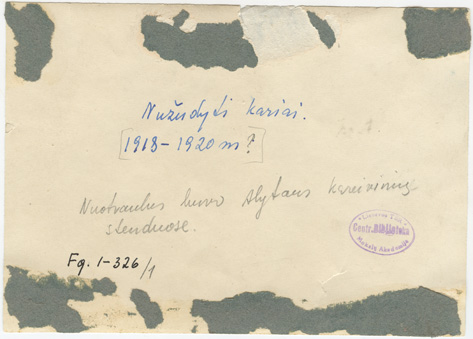 Nužudyti kariai.
[1918-1920 m?]
Nuotraukos buvo Alytaus kareivinių
stenduose.
Centr. Biblioteka
Mokslų Akademija
Fg. 1-326/1